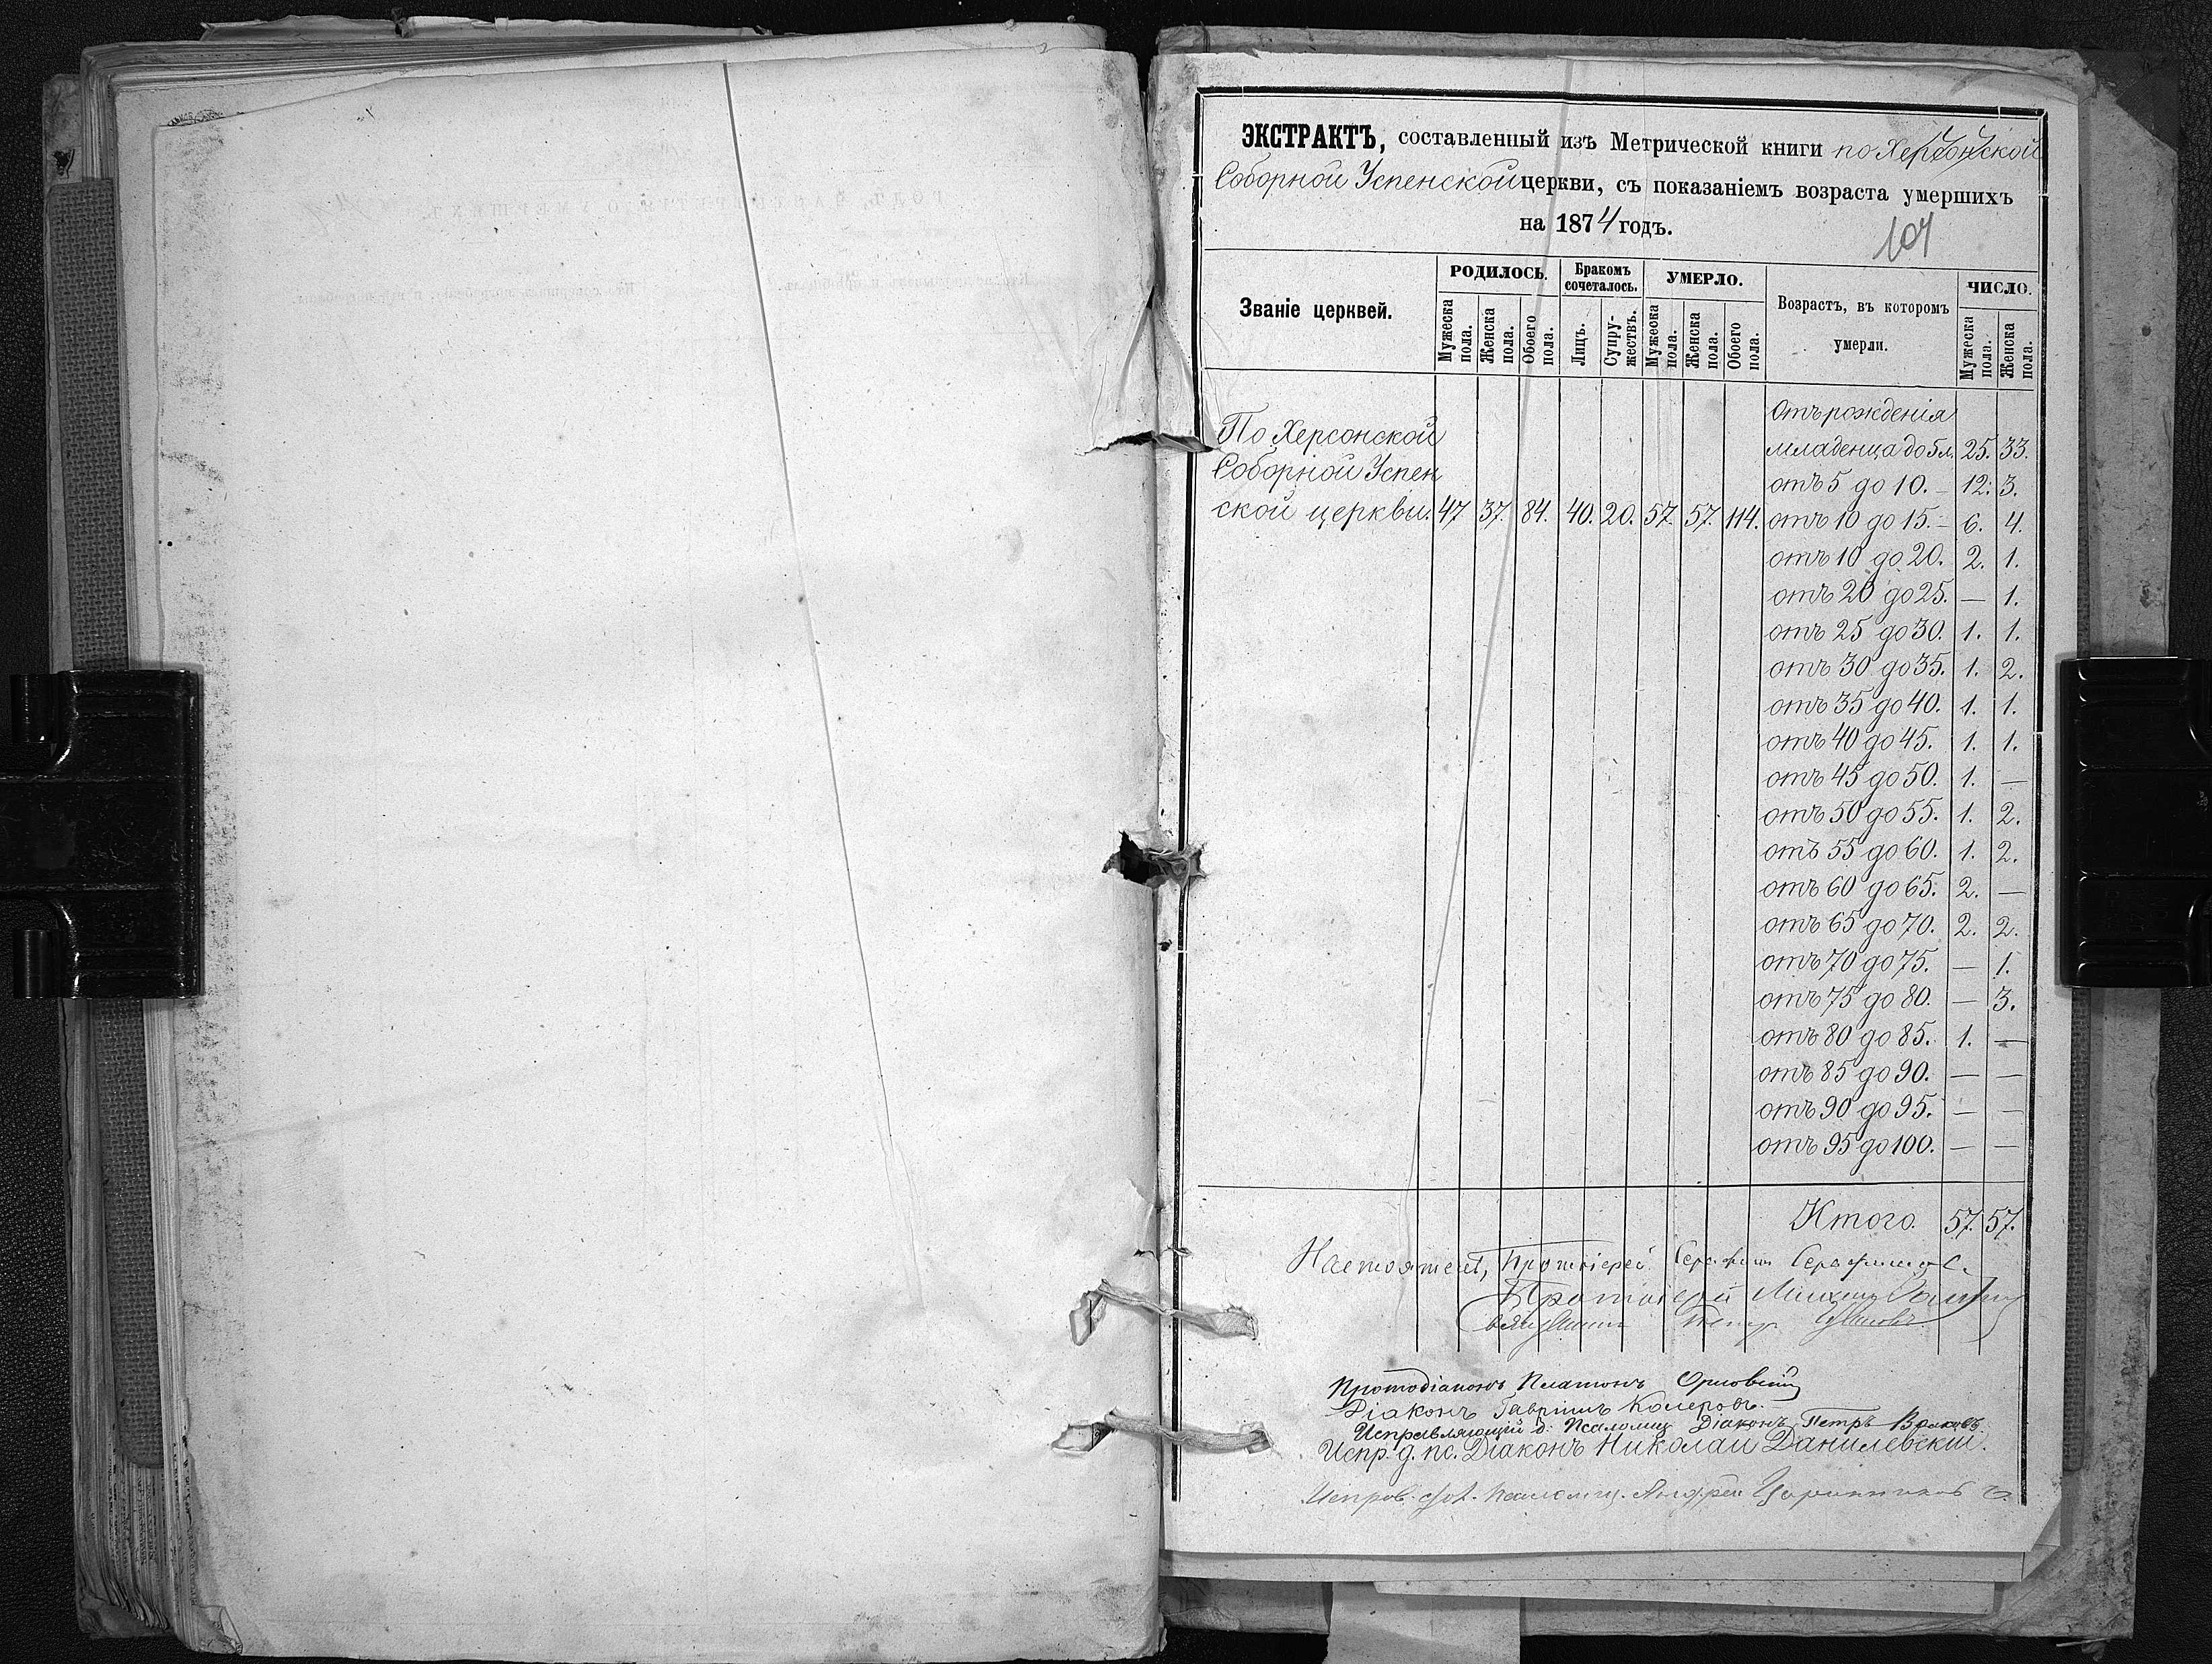 ЭКСТРАКТЪ, составленный изъ Метрической книги по Херсонской
Соборной Успенской церкви, съ показаніемъ возраста умершихъ
на 1874 годъ.
107
Званіе церквей.
РОДИЛОСЬ.
Мужеска пола.
Женска пола.
Обоего пола.
Бракомъ сочеталось.
Лицъ.
Супружествъ.
УМЕРЛО.
Мужеска пола.
Женска пола.
Обоего пола.
Возрастъ, въ которомъ
умерли.
ЧИСЛО.
Мужеска пола.
Женска пола.
По Херсонской
Соборной Успен
ской церкви. 47 37. 84. 40. 20. 57. 57. 114.
Отъ рожденія
младенца до 5 л. 25. 33.
отъ 5 до 10. — 12. 3.
отъ 10 до 15. — 6. 4.
отъ 10 до 20. 2. 1.
отъ 20 до 25. — 1.
отъ 25 до 30. 1. 1.
отъ 30 до 35. 1. 2.
отъ 35 до 40. 1. 1.
отъ 40 до 45. 1. 1.
отъ 45 до 50. 1. —
отъ 50 до 55. 1. 2.
отъ 55 до 60. 1. 2.
отъ 60 до 65. 2. —
отъ 65 до 70. 2. 2.
отъ 70 до 75. — 1.
отъ 75 до 80. — 3.
отъ 80 до 85. 1. —
отъ 85 до 90. — —
отъ 90 до 95. — —
отъ 95 до 100. — —
Итого. 57. 57.
Настоятель, Протоіерей Серафимъ Серафимовъ.
Протоіерей Михаилъ
Петръ
Протодіаконъ Платонъ Орловскій
Діаконъ Гавріилъ Колеровъ.
Исправляющій д. Псаломщ. Діаконъ Петръ Волковъ.
Испр. д. пс. Діаконъ Николай Данилевскій.
Исправ. дол. псаломщ. Андрей